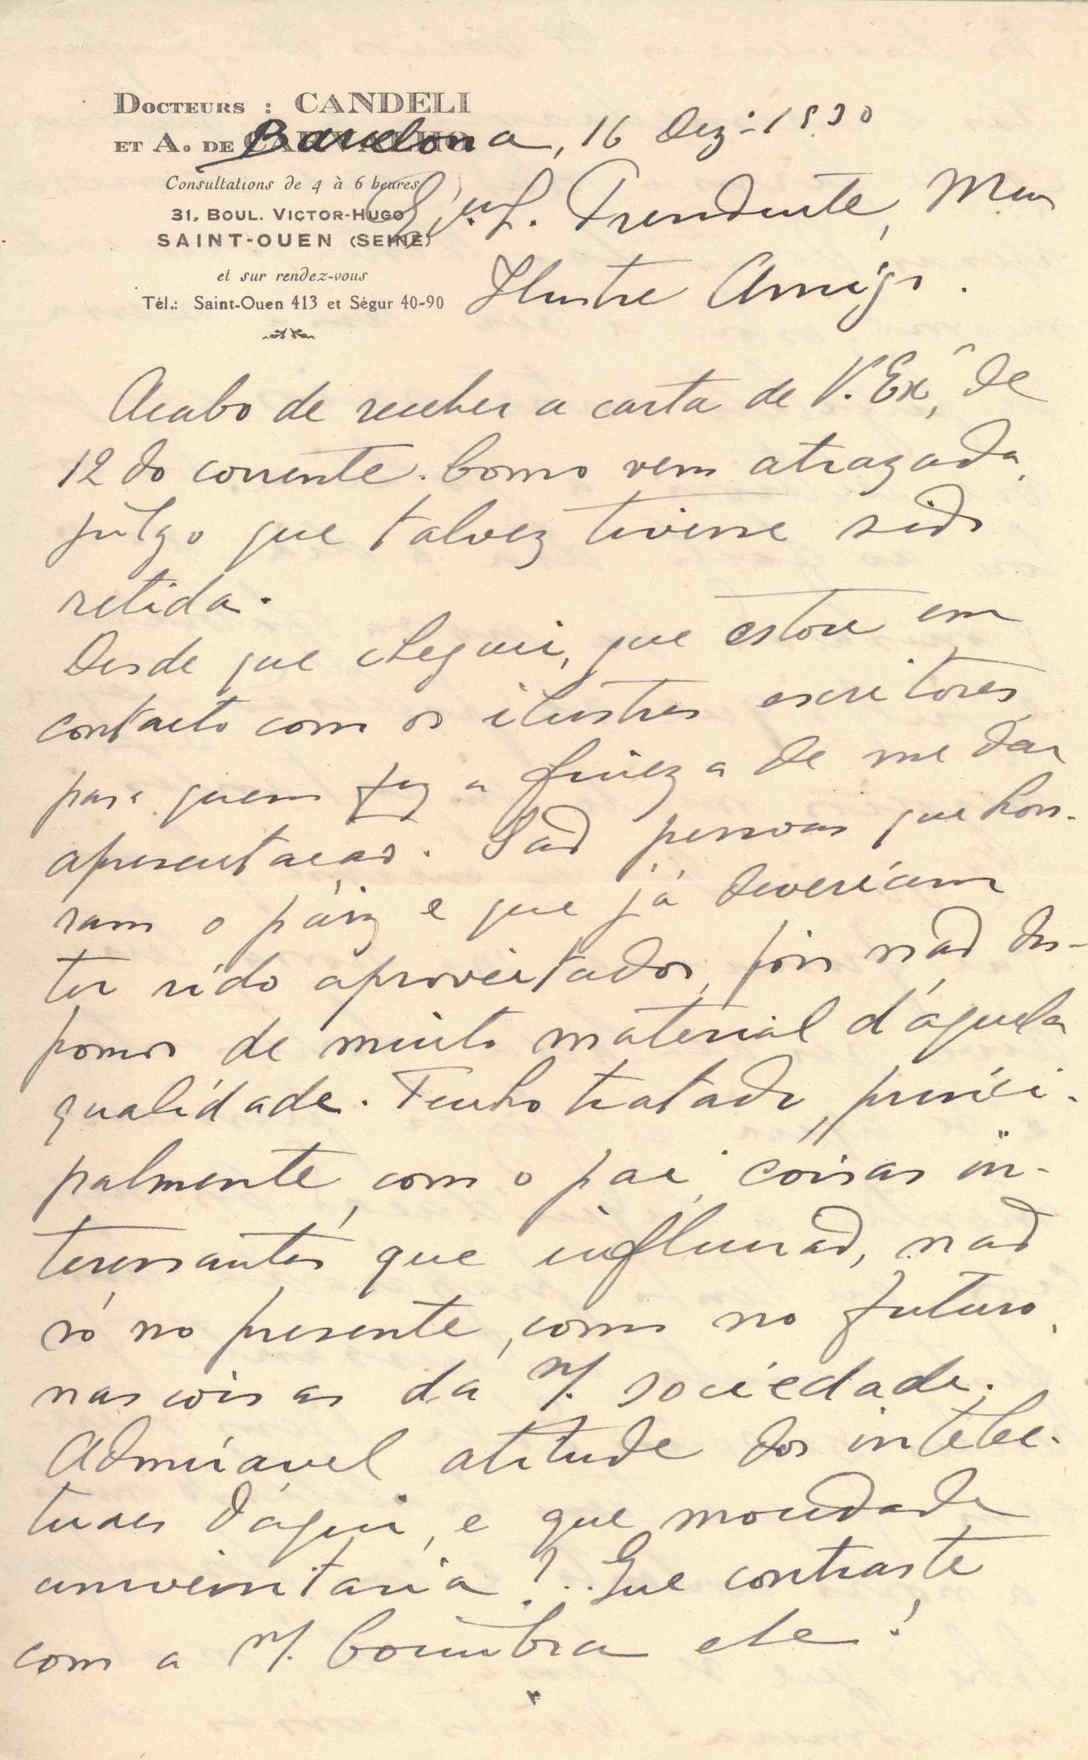 DOCTEURS : CANDELI
ET A. DE
Barcelona, 16 Dez.-1930
Consultations de 4 à 6 heures
31, BOUL. VICTOR-HUGO
SAINT-OUEN (SEINE)
et sur rendez-vous
Tél.: Saint-Ouen 413 et Ségur 40-90
Presidente, Meu
Ilustre Amigo.
Acabo de receber a carta de V. Exª, de
12 do corrente. Como vem atrazada,
julgo que talvez tivesse sido
retida.
Desde que cheguei, que estou em
contacto com os ilustres escritores
para quem fez a fineza de me dar
apresentacao. São pessoas que hon-
ram o páiz e que já deveriam
ter sido aproveitados, pois não dis-
pomos de muito material d'aquela
qualidade. Tenho tratado, princi-
palmente, com o pai, coisas in-
teressantes que influirão, não
só no presente, como no futuro,
nas coisas da n/. sociedade.
Admiravel atitude dos intelec-
tuaes d'aqui, e que mocidade
universitaria!.. Que contraste
com a n/. Coimbra etc!